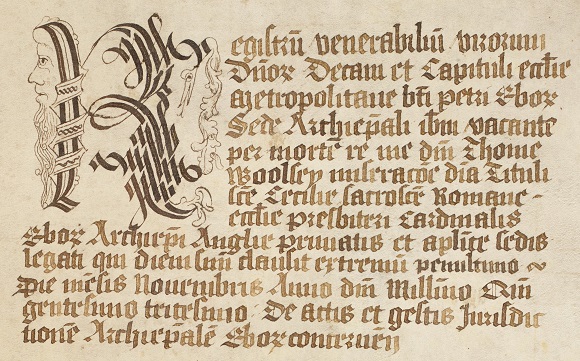 Registrũ venerabiliũ virorum
Dñoꝝ Decani et Capituli ecctie
Metropolitane bti petri Eboꝝ
Sede Archiep̃ali ibm̃ vacante
per mortẽ re ue dñi Thome
Woolsey miseracõe dia Tituli
scẽ Cecilie sacroscẽ Romane-
ecctie presbiteri Cardinalis
Eboꝝ Archiep̃i Anglie primatis et aplice sedis
legati qui diem suũ clausit extremũ penultimo
Die mẽsis Novembris Anno dñi Millimo Quin
gentesimo tricesimo. De actis et gestis Jurisdic
tionẽ Archiep̃alẽ Eboꝝ concerneñ